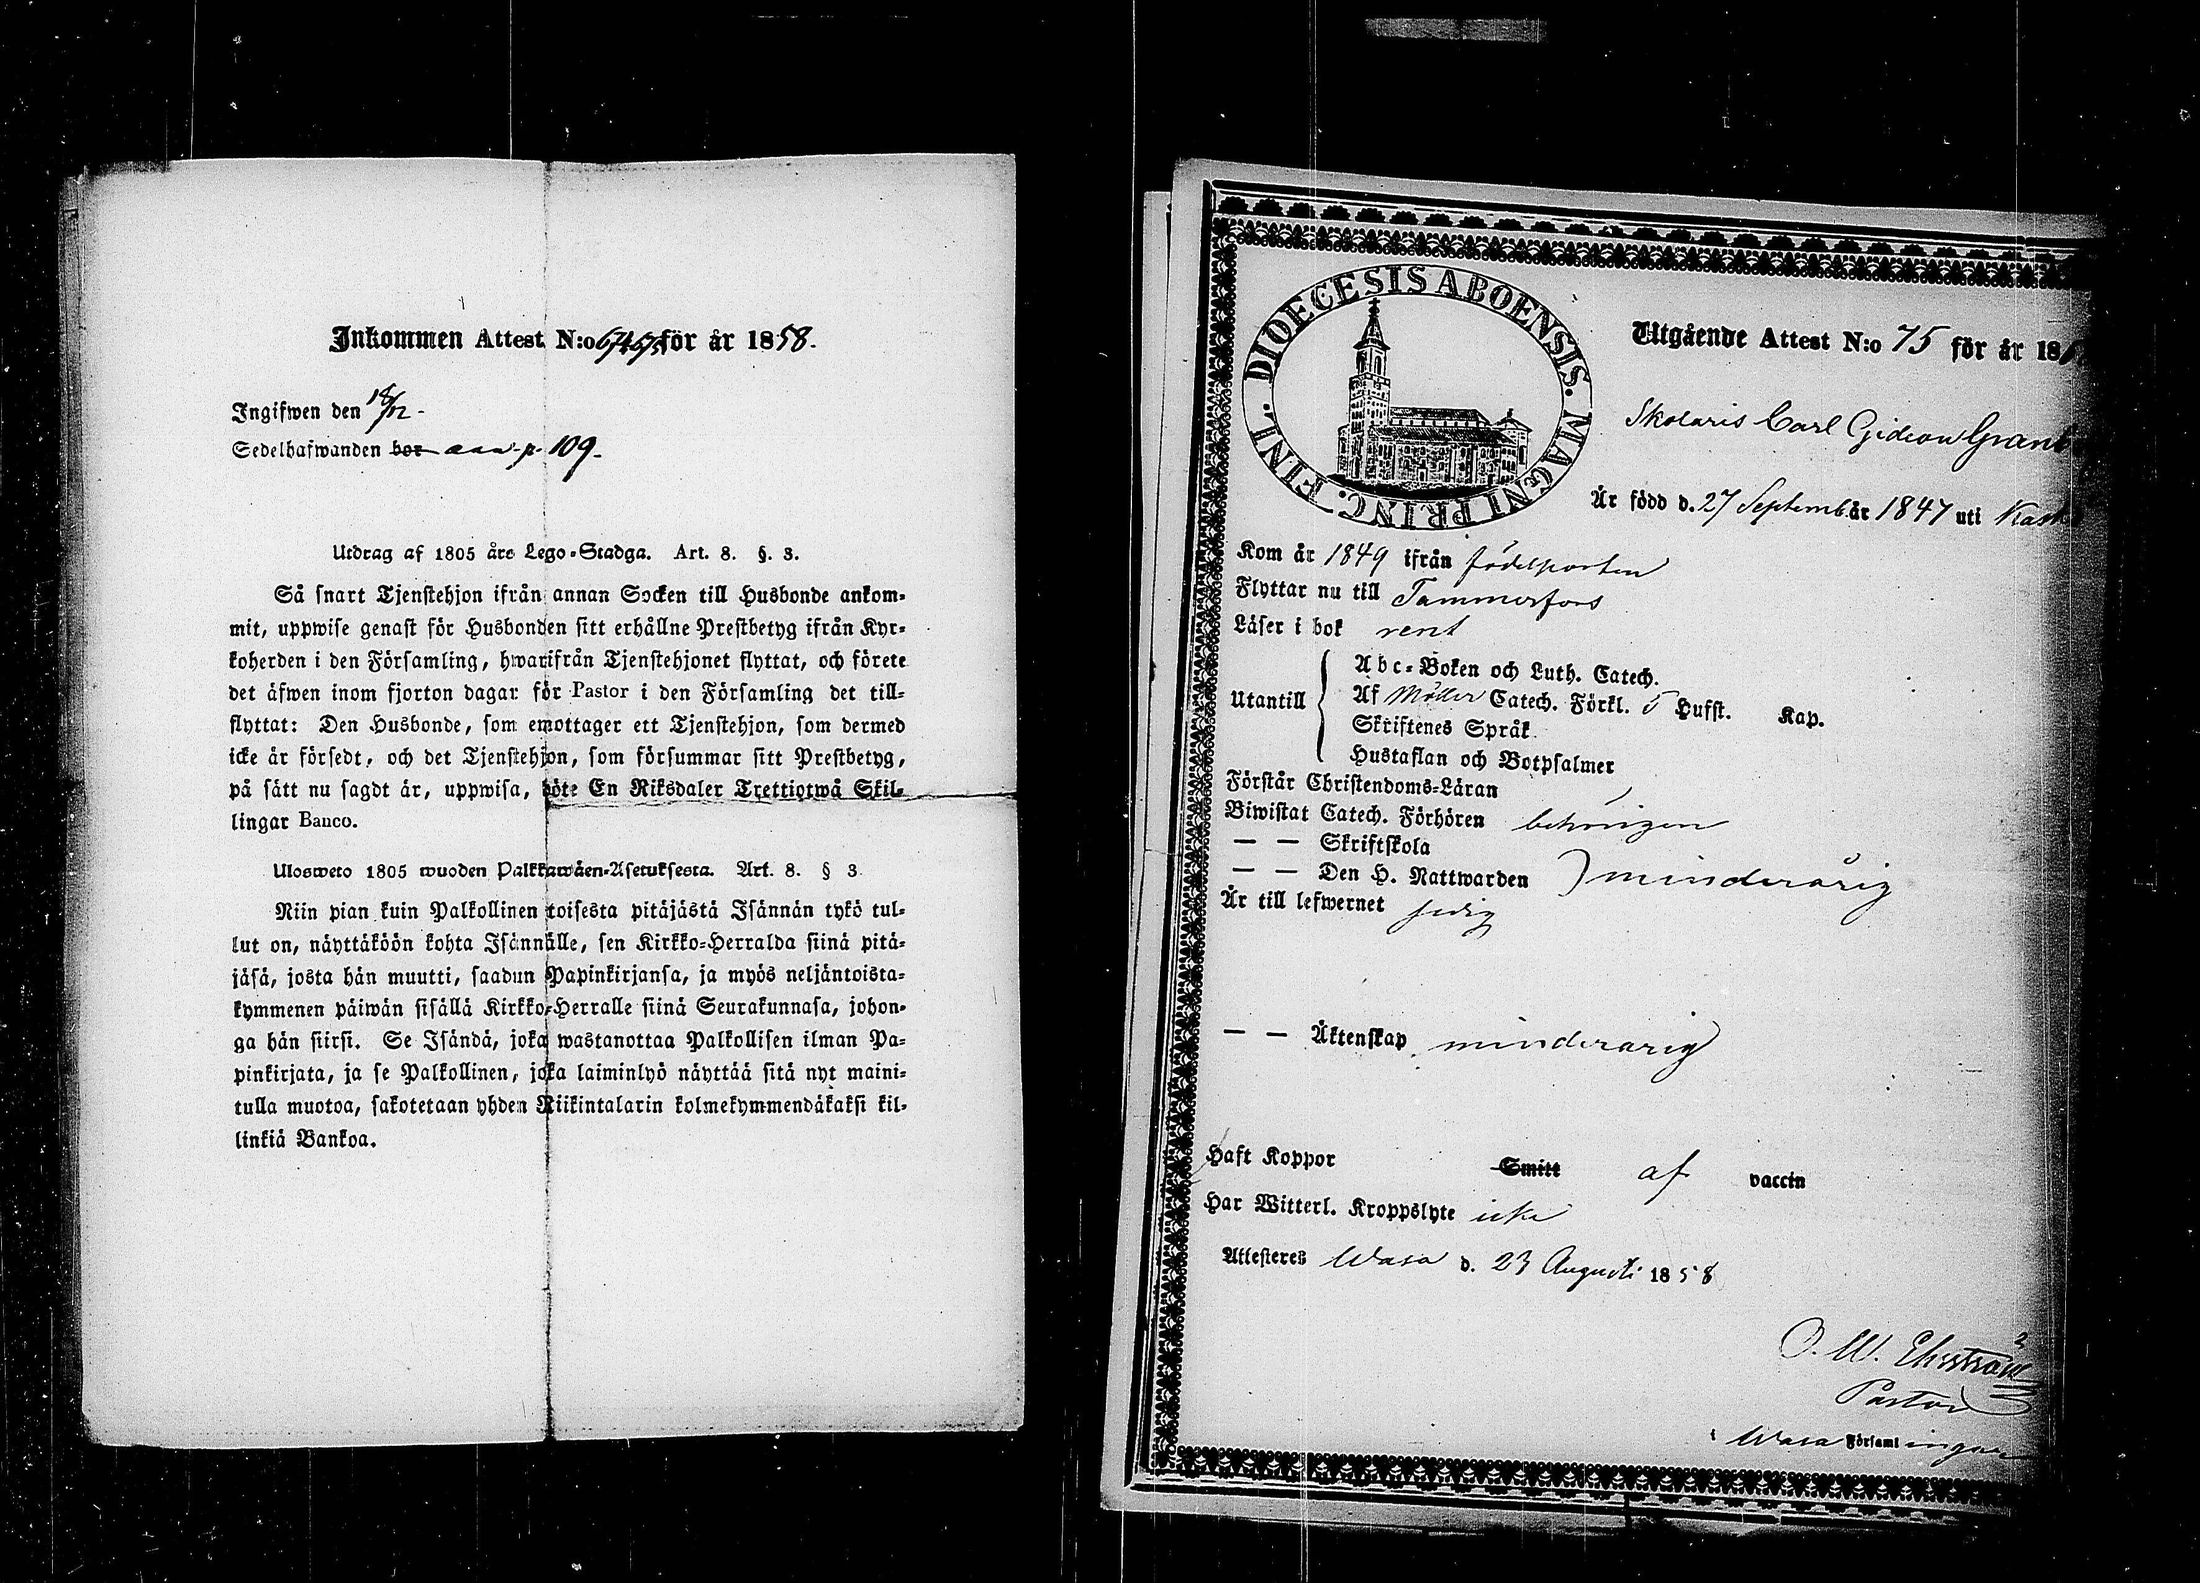 Inkommen Attest N:o för år 1858.
Ingifwen den 18/12 -
Sedelhafwanden bor p. 109.
Utdrag af 1805 års Lego-Stadga. Art. 8. §. 3.
Så snart Tjenstehjon ifrån annan Socken till Husbonde ankom-
mit, uppwise genast för Husbonden sitt erhållne Prestbetyg ifrån Kyr-
koherden i den Församling, hwarifrån Tjenstehjonet flyttat, och förete
det äfwen inom fjorton dagar för Pastor i den Församling det till-
flyttat: Den Husbonde, som emottager ett Tjenstehjon, som dermed
icke är försedt, och det Tjenstehjon, som försummar sitt Prestbetyg,
på sätt nu sagdt är, uppwisa, böte En Riksdaler Trettiotwå Skil-
lingar Banco.
Ulosweto 1805 wuoden Palkkawäen-Asetuksesta. Art. 8. § 3
Niin pian kuin Palkollinen toisesta pitäjästä Isännän tykö tul-
lut on, näyttäköön kohta Isännälle, sen Kirkko-Herralda siinä pitä-
jäsä, josta hän muutti, saadun Papinkirjansa, ja myös neljäntoista-
kymmenen päiwän sisällä Kirkko-Herralle siinä Seurakunnasa, johon-
ga hän siirsi. Se Isändä, joka wastanottaa Palkollisen ilman Pa-
pinkirjata, ja se Palkollinen, joka laiminlyö näyttää sitä nyt maini-
tulla muotoa, sakotetaan yhden Riikintalarin kolmekymmendäkaksi kil-
linkiä Bankoa.
DIOECESIS ABOENSIS. MAGNI PRINC. FINL.
Utgående Attest N:o 75 för år 18
Skolaris Carl Gideon
Är född d. 27 Septemb. år 1847 uti
Kom år 1849 ifrån födelseorten
Flyttar nu till Tammerfors
Läser i bok rent
Utantill
Abc-Boken och Luth. Catech.
Af Möller Catech. Förkl. 5 Hufst. Kap.
Skriftenes Språk
Hustaflan och Botpsalmer
Förstår Christendoms-Läran
Biwistat Catech. Förhören behörigen
— — Skriftskola
— — Den H. Nattwarden ) minderårig
Är till lefwernet sedig
— — Äktenskap minderårig
Haft Koppor Smitt af vaccin
Har Witterl. Kroppslyte icke
Attesteras Wasa d. 23 Augusti 1858
O. W. Ehrström
Pastor
Wasa Församl